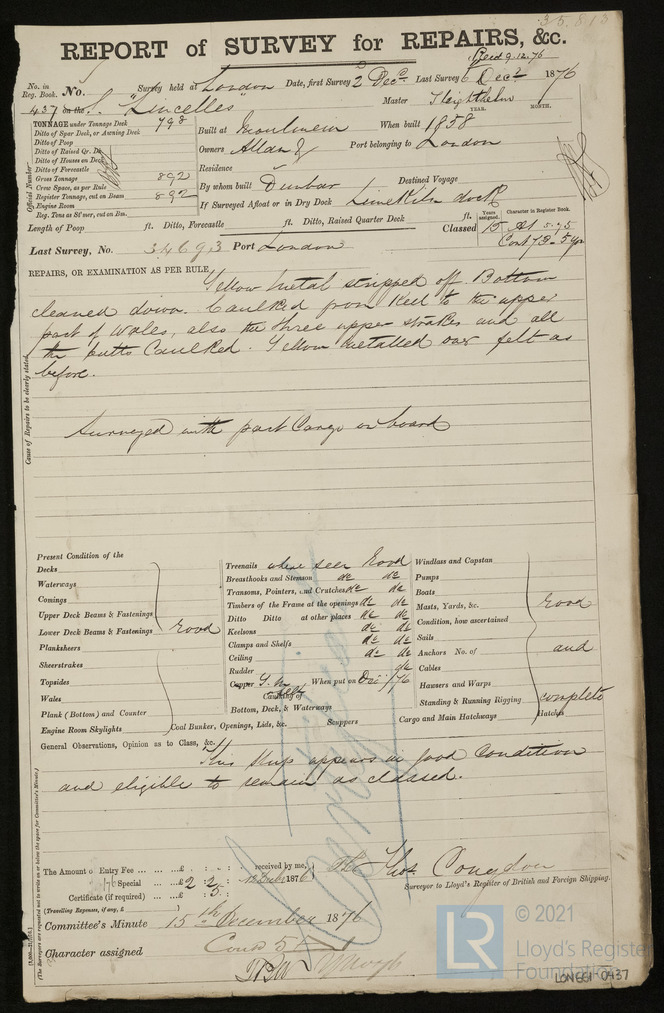 35.813
REPORT of SURVEY for REPAIRS, &c.
Recd 9.12.76
No. in Reg. Book. No. Survey held at London Date, first Survey 2 Decr. Last Survey 6 Decr 1876
437 on the S. "Lincelles" Master
YEAR. MONTH.
TONNAGE under Tonnage Deck 798 Built at Moulmein When built 1858
Ditto of Spar Deck, or Awning Deck
Ditto of Poop Owners Allan Port belonging to London
Ditto of Raised Qr. Dk
Ditto of Houses on Deck Residence
Ditto of Forecastle
Gross Tonnage 892 By whom built Dunbar Destined Voyage
Crew Space, as per Rule
Register Tonnage, cut on Beam 892 If Surveyed Afloat or in Dry Dock Limekiln dock
Engine Room
Reg. Tons as St'mer, cut on Bm.
Official Number
Years assigned. Character in Register Book.
Length of Poop ft. Ditto, Forecastle ft. Ditto, Raised Quarter Deck ft. Classed 15 A1 5.75
Cont 73 - 5 yrs
Last Survey, No. 34693 Port London
REPAIRS, OR EXAMINATION AS PER RULE
Yellow metal stripped off Bottom
cleaned down. Caulked from Keel to the upper
part of Wales, also the three upper strakes and all
the butts Caulked. Yellow metalled over felt as
before.
Cause of Repairs to be clearly stated.
Surveyed with part Cargo on board
Present Condition of the
Decks
Waterways
Comings
Upper Deck Beams & Fastenings
Lower Deck Beams & Fastenings Good
Planksheers
Sheerstrakes
Topsides
Wales
Plank (Bottom) and Counter
Engine Room Skylights
Coal Bunker, Openings, Lids, &c. Scuppers Cargo and Main Hatchways Hatches
Treenails where seen Good
Breasthooks and Stemson do do
Transoms, Pointers, and Crutches do do
Timbers of the Frame at the openings do do
Ditto Ditto at other places do do
Keelsons do do
Clamps and Shelfs do do
Ceiling do do
Rudder do
Copper Y.M. When put on Dec /76
felt
Caulking of
Bottom, Deck, & Waterways
Windlass and Capstan
Pumps
Boats
Masts, Yards, &c. Good
Condition, how ascertained
Sails
Anchors No. of and
Cables
Hawsers and Warps
Standing & Running Rigging complete
General Observations, Opinion as to Class, &c.
This Ship appears in good Condition
and eligible to remain as classed.
The Amount of Entry Fee ... £ : : received by me,
Special ... £ 2 : 2 : 1876
Certificate (if required) ... £ : 5 :
(Travelling Expenses, if any, £ )
Thos Congdon
Surveyor to Lloyd's Register of British and Foreign Shipping.
Committee's Minute 15th December 1876
Character assigned Contd 5
(The Surveyors are requested not to write on or below the space for Committee's Minute.)
© 2021
Lloyd's Register
Foundation
LR
LON661-0437